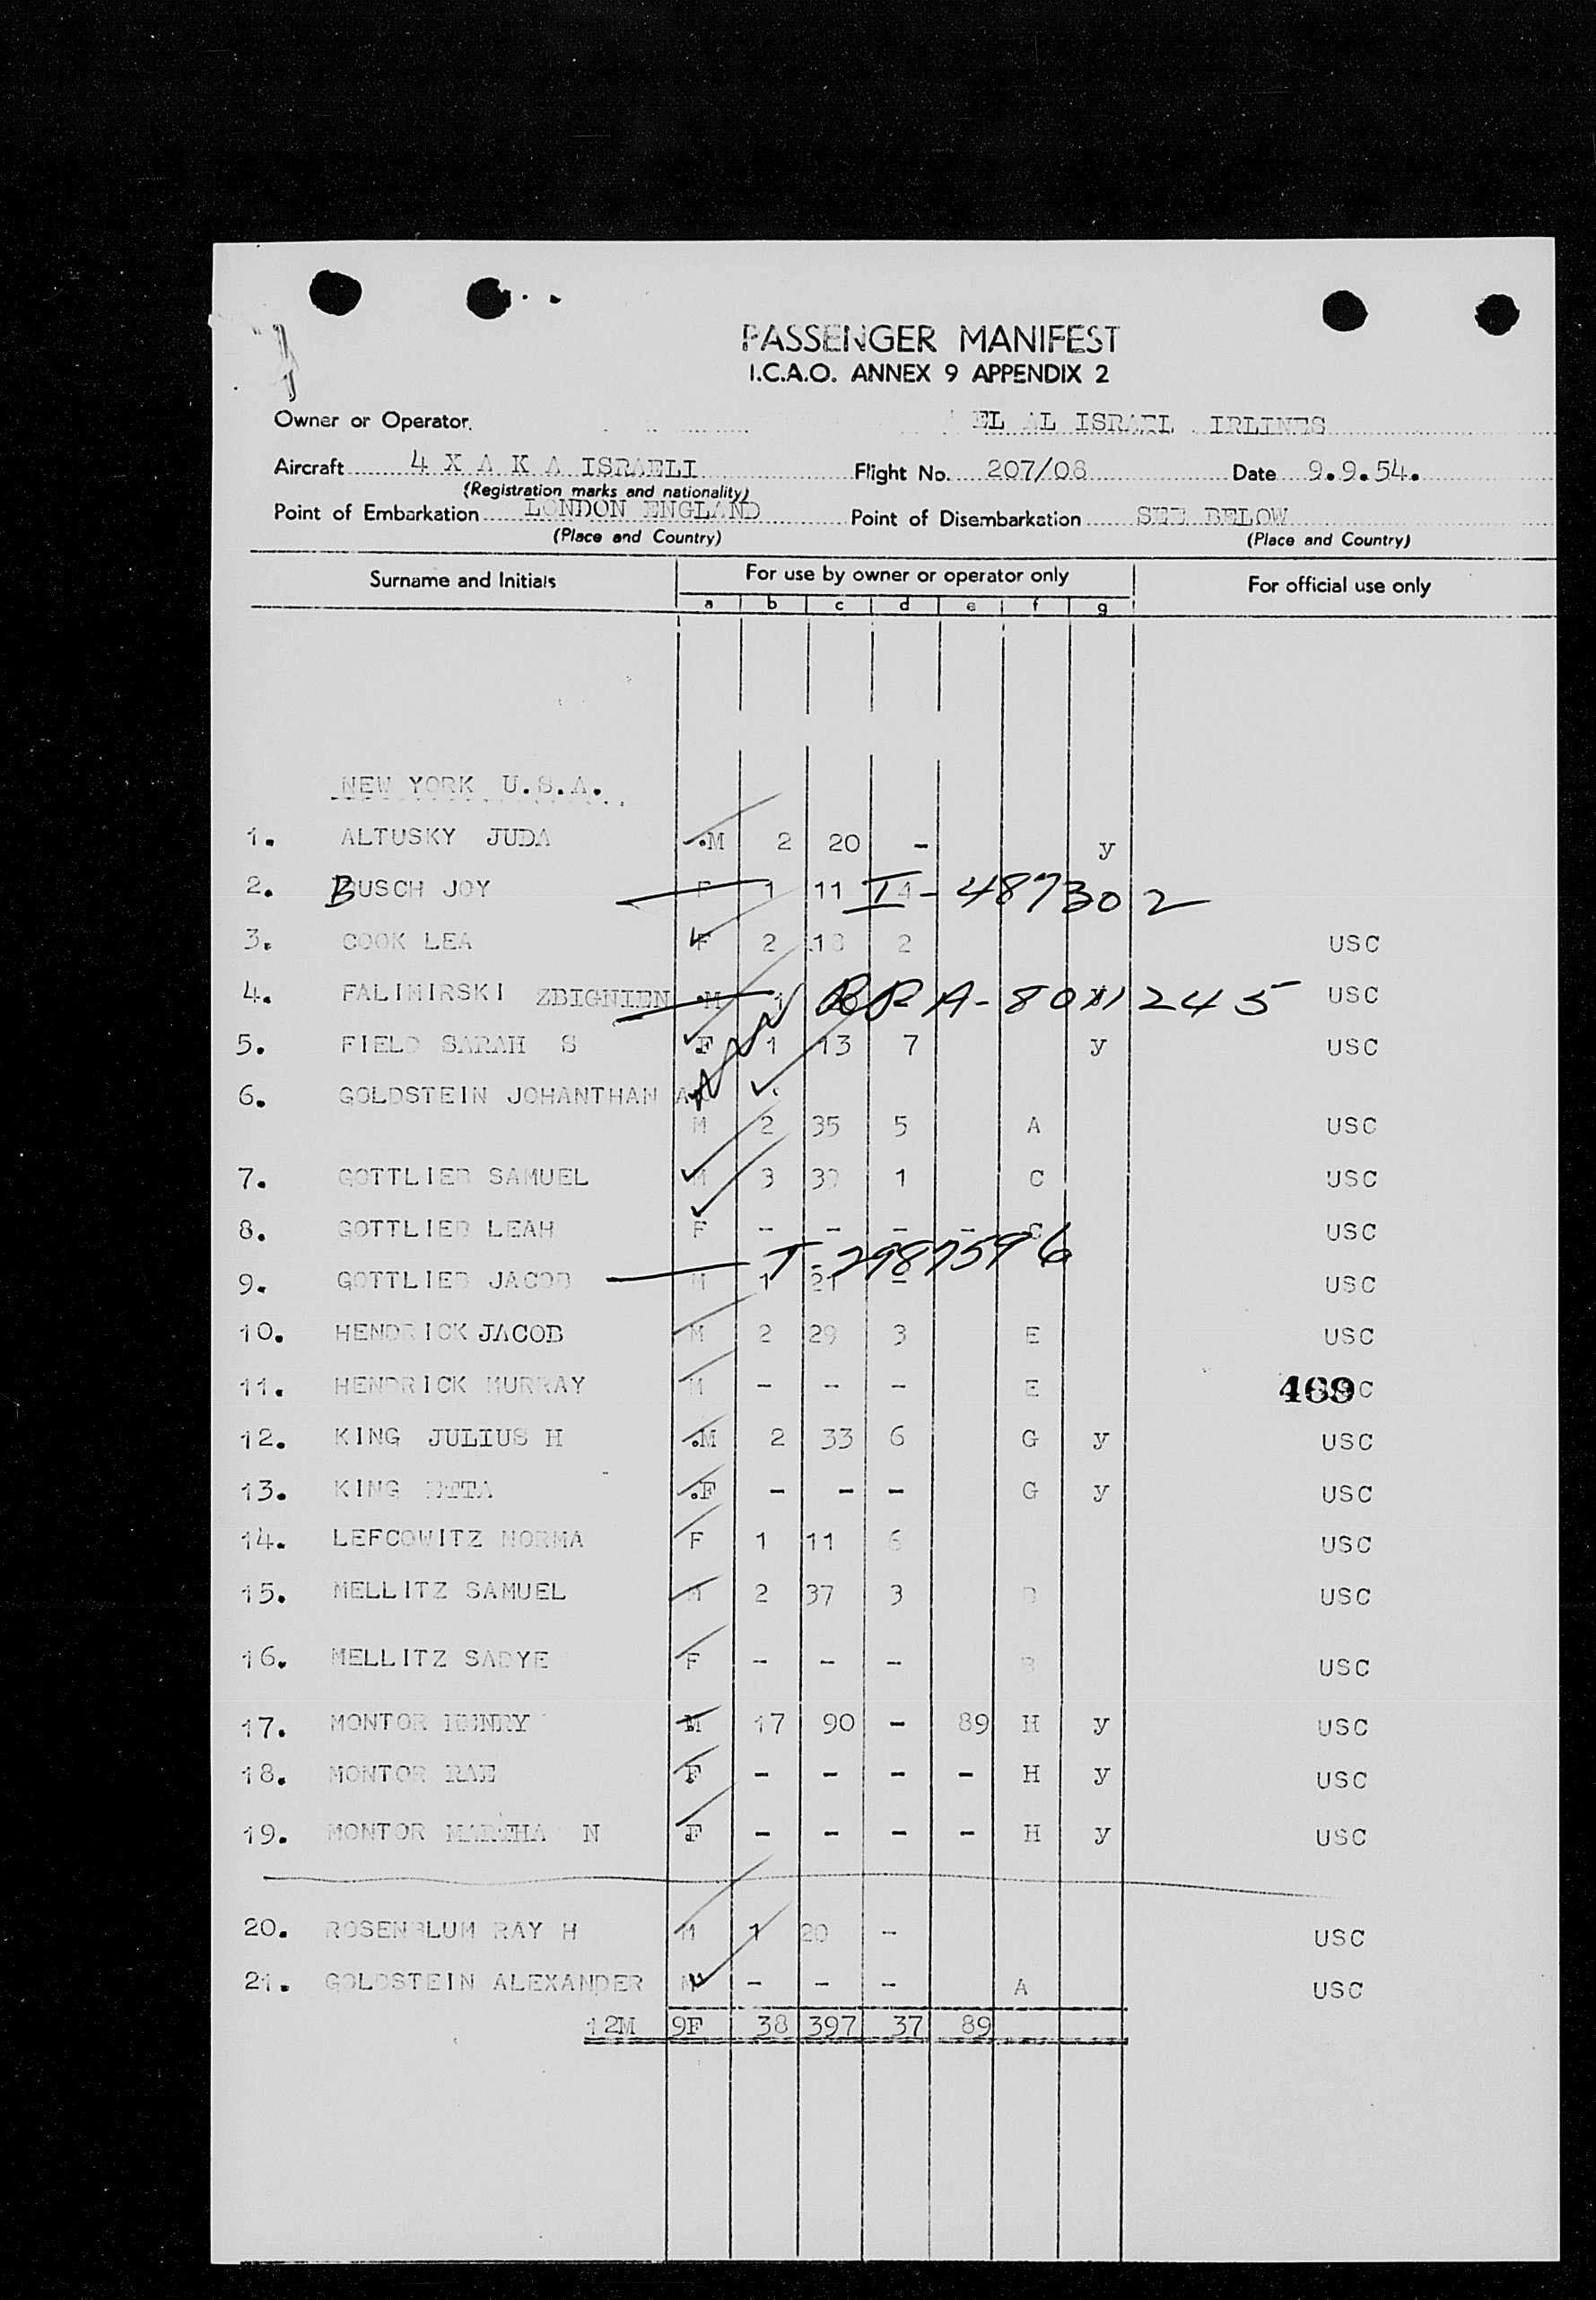 PASSENGER MANIFEST
I.C.A.O. ANNEX 9 APPENDIX 2
Owner or Operator. EL AL ISRAEL IRLINES
Aircraft 4 X A K A ISRAELI Flight No. 207/08 Date 9.9.54.
(Registration marks and nationality)
Point of Embarkation LONDON ENGLAND Point of Disembarkation SEE BELOW
(Place and Country) (Place and Country)
Surname and Initials For use by owner or operator only For official use only
a b c d e f g
NEW YORK U.S.A.
1. ALTUSKY JUDA .M 2 20 - y
2. BUSCH JOY F 1 11 4 I-487302
3. COOK LEA F 2 18 2 USC
4. FALIMIRSKI ZBIGNIEN .M 1 A-8011245 USC
5. FIELD SARAH S .F 1 13 7 y USC
6. GOLDSTEIN JOHANTHAN
M 2 35 5 A USC
7. GOTTLIEB SAMUEL M 3 39 1 C USC
8. GOTTLIEB LEAH F - - - - C USC
9. GOTTLIEB JACOB M 1 21 - USC
10. HENDRICK JACOB M 2 29 3 E USC
11. HENDRICK MURRAY M - - - E 469 C
12. KING JULIUS H .M 2 33 6 G y USC
13. KING .F - - - G y USC
14. LEFCOWITZ NORMA F 1 11 6 USC
15. MELLITZ SAMUEL M 2 37 3 USC
16. MELLITZ SADYE F - - - B USC
17. MONTOR HENRY M 17 90 - 89 H y USC
18. MONTOR RAE F - - - - H y USC
19. MONTOR MARTHA N F - - - - H y USC
20. ROSENBLUM RAY H M 1 20 - USC
21. GOLDSTEIN ALEXANDER M - - - A USC
12M 9F 38 397 37 89